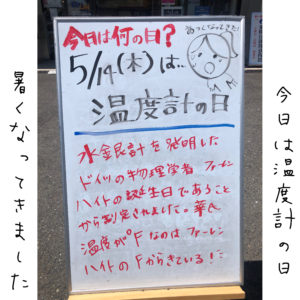 今日は温度計の日
今日は何の日?
あつくなってきた!
5/14(木)は、
温度計の日
水銀計を発明した
ドイツの物理学者 ファーレン
ハイトの誕生日であること
から制定されました。華氏
温度が°Fなのはファーレン
ハイトのFからきている!!
暑くなってきました